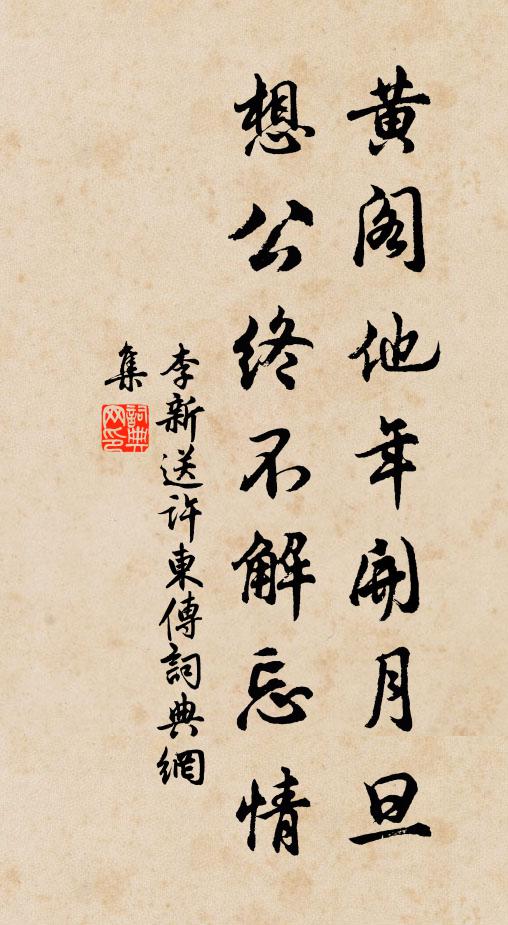 黄阁他年开月旦
想公终不解忘情
李新送許東傳詞典網
集
詞典网印